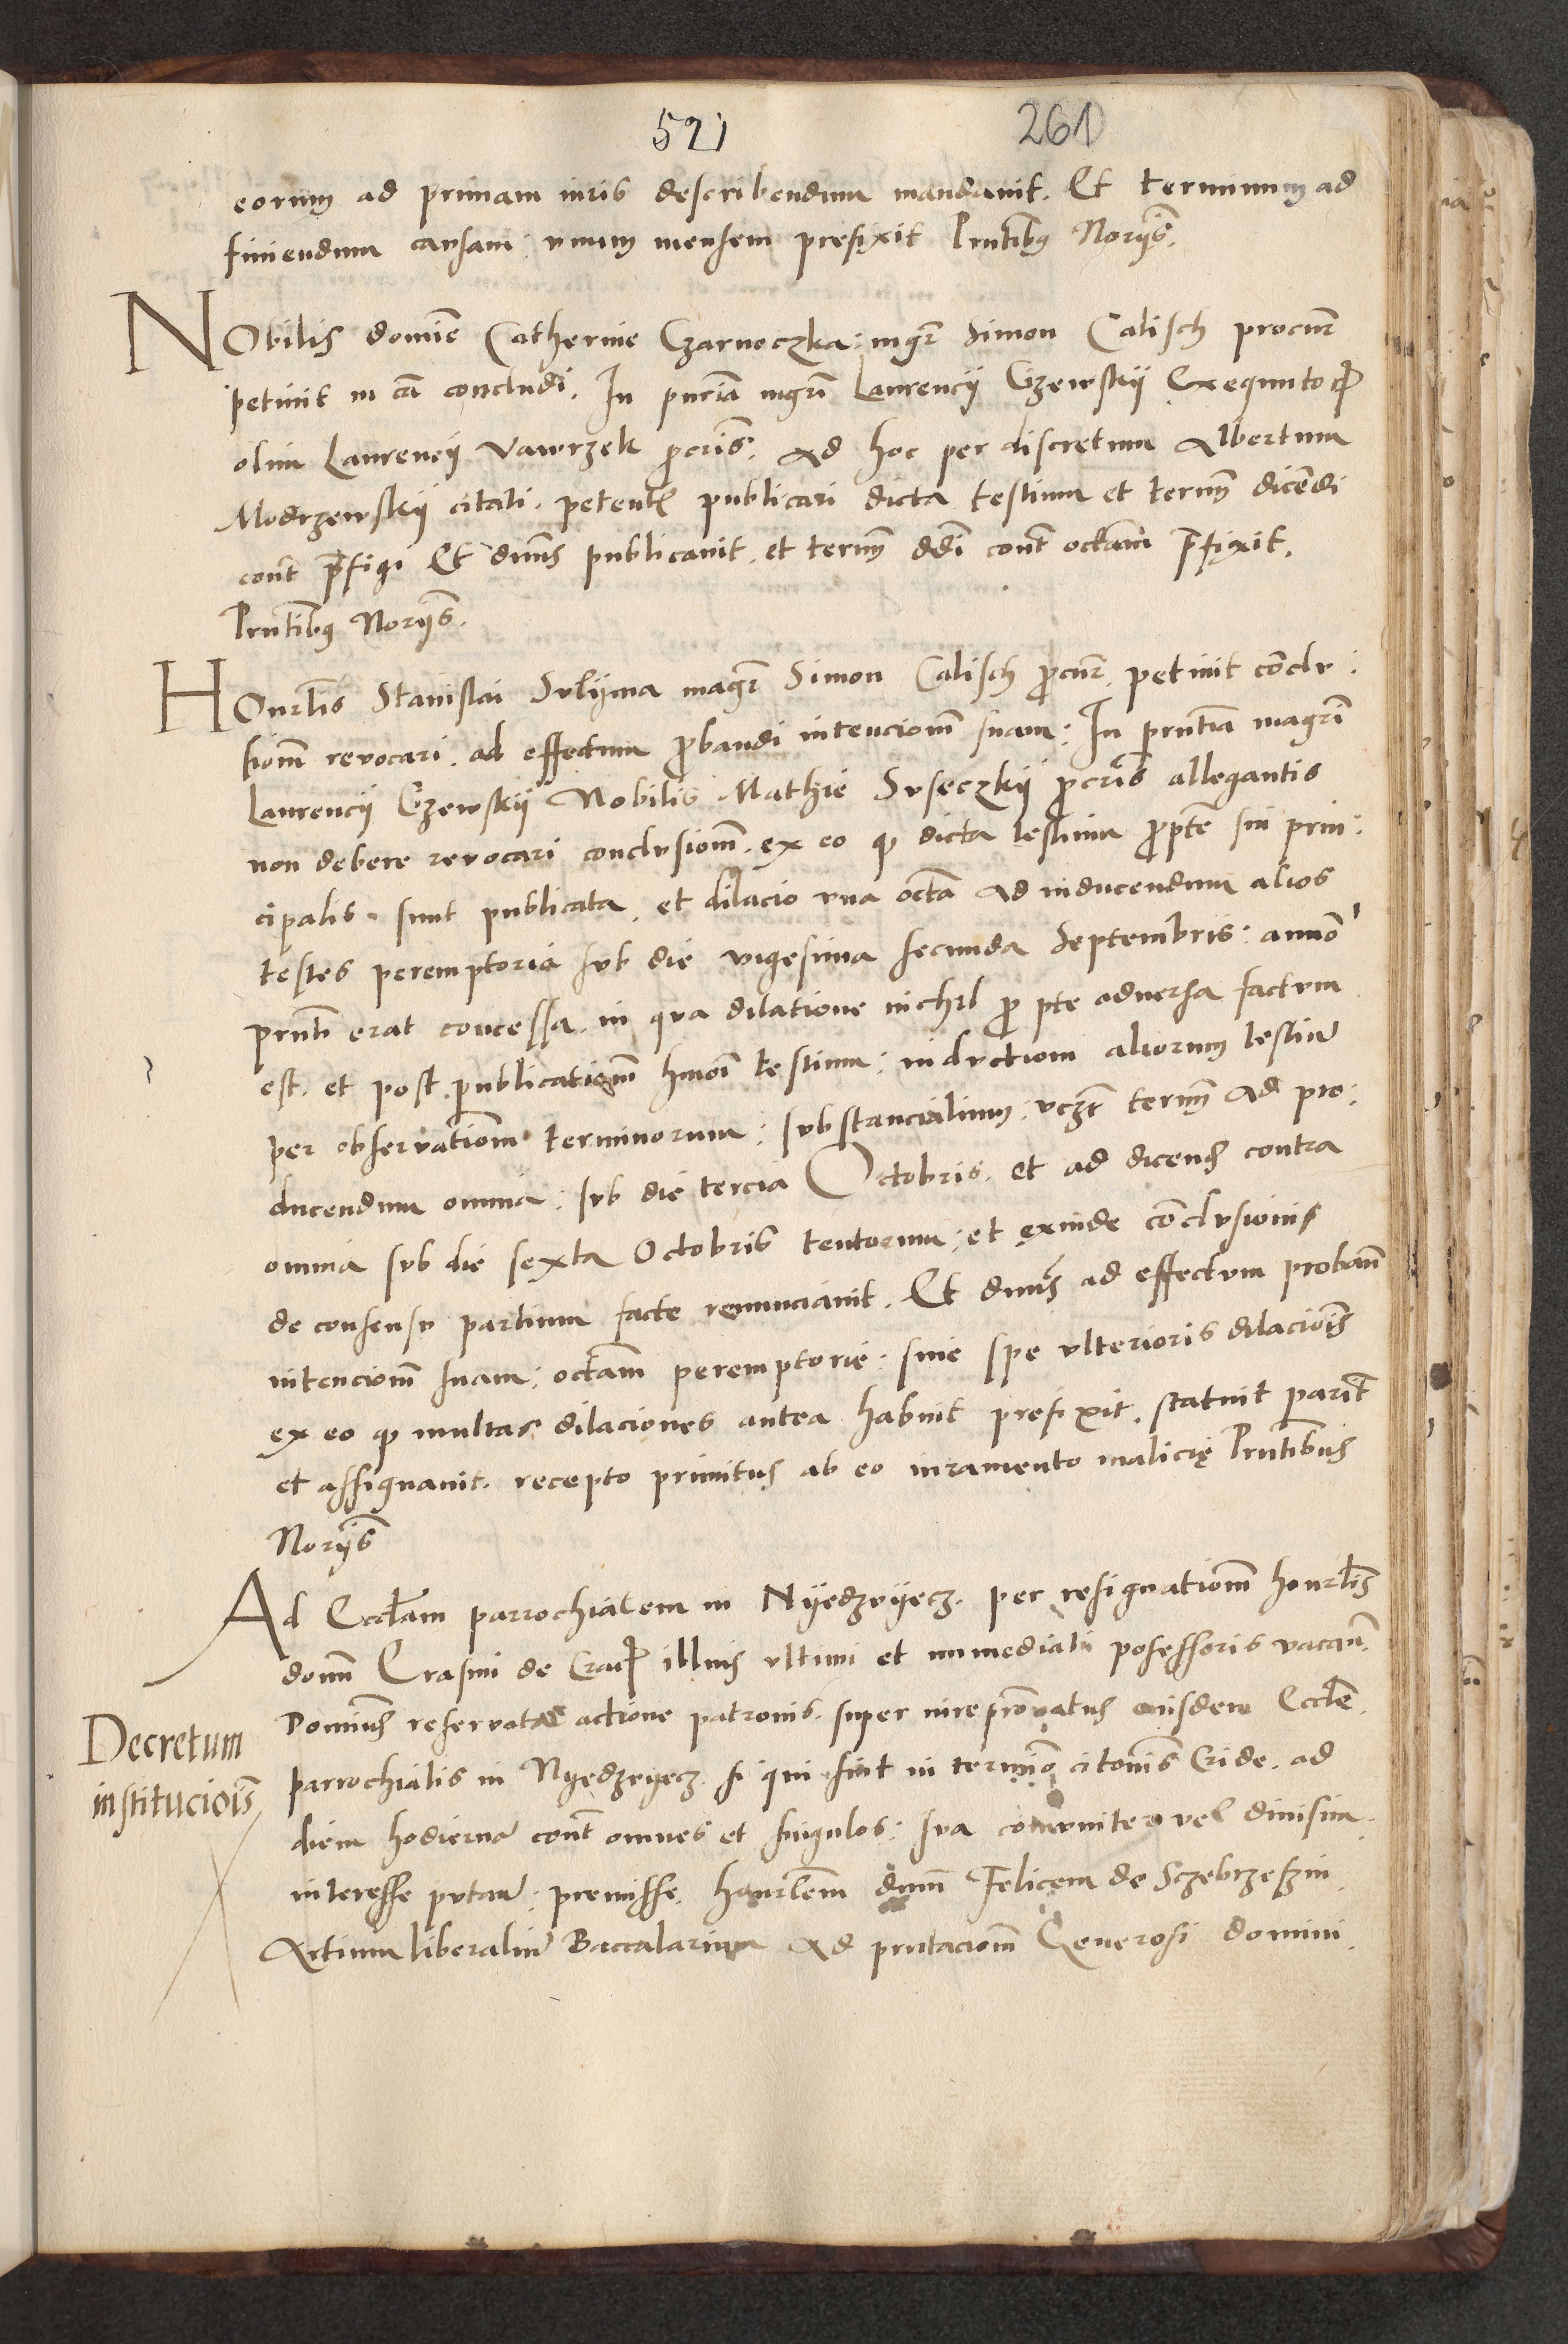 521
261
eorum ad primam iuris describendum mandavit. Et terminum ad
finiendum causam: unum mensem prefixit Prntibus Norijs.
NObilis domine Catherine Czarnoczka: mgr Simon Calisch procur
petivit in ca concludi. In pncia mgri Laurencij Gzewskij Exequutor
olim Laurencij Vawrzek pcris. Ad hoc per discretum Albertum
Modrzewskij citati. petent publicari dicta testium et termn dicendi
cont pfigi Et dnus publicavit. et termn ddi cont octavam pfixit.
Prntibus Norijs.
HOnrlis Stanislai Sulijma magr Simon Calisch pcur petivit conclu:
sionm revocari. ad effectum pbandi intencionm suam: In prntia magri
Laurencij Gzewskij Nobilis Mathie Suseczkij pcris allegantis
non debere revocari conclusionm. ex eo q dicta testium pпte sui prin:
cipalis. sunt publicata. et dilacio una octa ad inducendum alios
testes peremptoria sub die vigesima secunda Septembris: anno
prnti erat concessa. in qua dilatione nichil p pte adversa factum
est. et post publicationm hmoi testium: inductionm aliorum testiu
per observationm terminorum: substancialium: vczt termn ad pro:
ducendum omnia: sub die tercia Octobris. et ad dicend contra
omnia sub die sexta Octobris tentorum: et exinde conclusionis
de consensu partium facte renunciavit. Et dnus ad effectum proband
intencionm suam: octam peremptorie: sine spe ulterioris dilacionis
ex eo q multas dilaciones antea habuit prefixit. statuit parit
et assignavit. recepto primitus ab eo iuramento malicię Prntibus
Norijs
Ad Eccliam parrochialem in Nyedzvyecz. per resignationm honrlis
domi Erasmi de Crac illius ultimi et immediati possessoris vacan.
Dominus reservata actione patronis. super iurepronatus eiusdem Ecclie.
parrochialis in Nyedzvyecz. si qui sint in termino citonis Cride. ad
diem hodierna cont omnes et singulos: sua comuniter vel divisim.
interesse putan: premisse. honrlem dnum Felicem de Sczebrzeszin.
Artium liberaliu Baccalarium ad prntacionm Generosi domini.
Decretum
instituciois